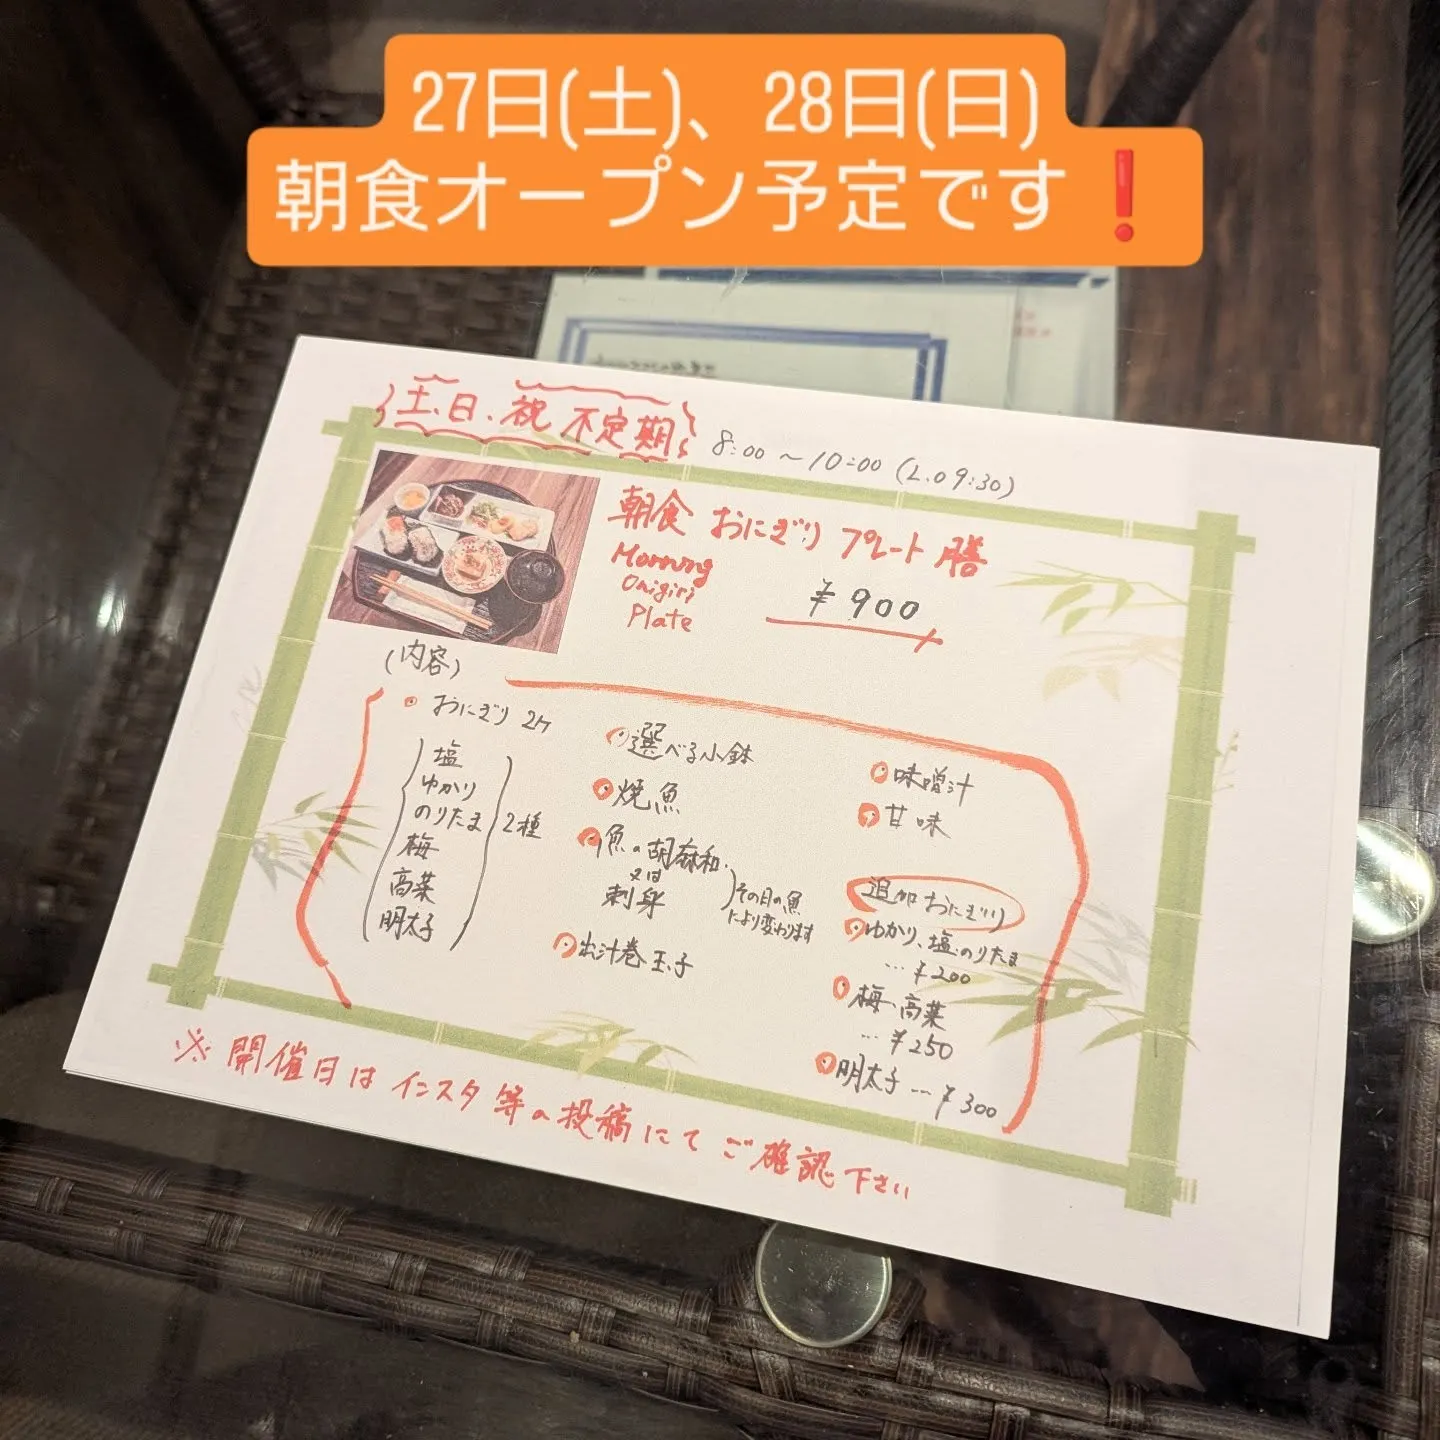 27日(土)、28日(日)
朝食オープン予定です❗
土、日、祝 不定期
8:00～10:00 (L.O 9:30)
朝食 おにぎり プレート 膳
Morning
Onigiri
Plate
¥900
(内容)
おにぎり 2ケ
塩
ゆかり
のりたま
梅
高菜
明太子
2種
選べる小鉢
焼魚
魚の胡麻和
又は
刺身
その日の魚
により変わります
出汁巻玉子
味噌汁
甘味
追加おにぎり
ゆかり、塩、のりたま
…¥200
梅、高菜
…¥250
明太子…¥300
※開催日はインスタ等の投稿にてご確認下さい